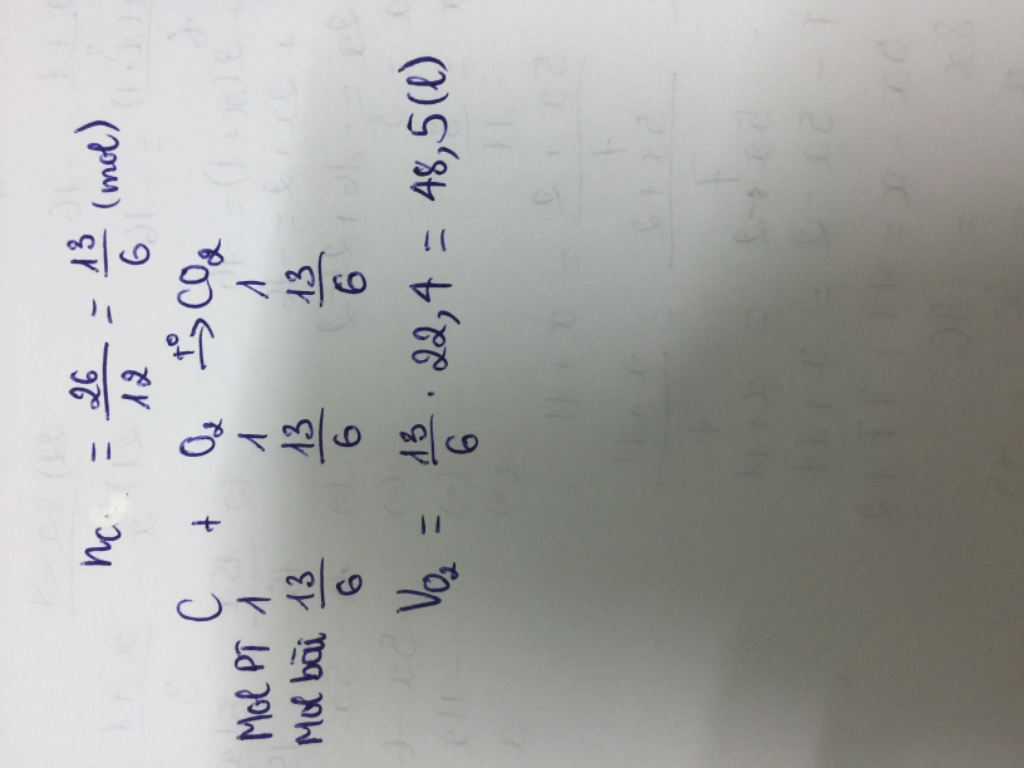 nC = 26/12 = 13/6 (mol)
C + O₂ →(t°) CO₂
Mol PT 1 1 1
Mol bài 13/6 13/6 13/6
VO₂ = 13/6 . 22,4 = 48,5 (l)